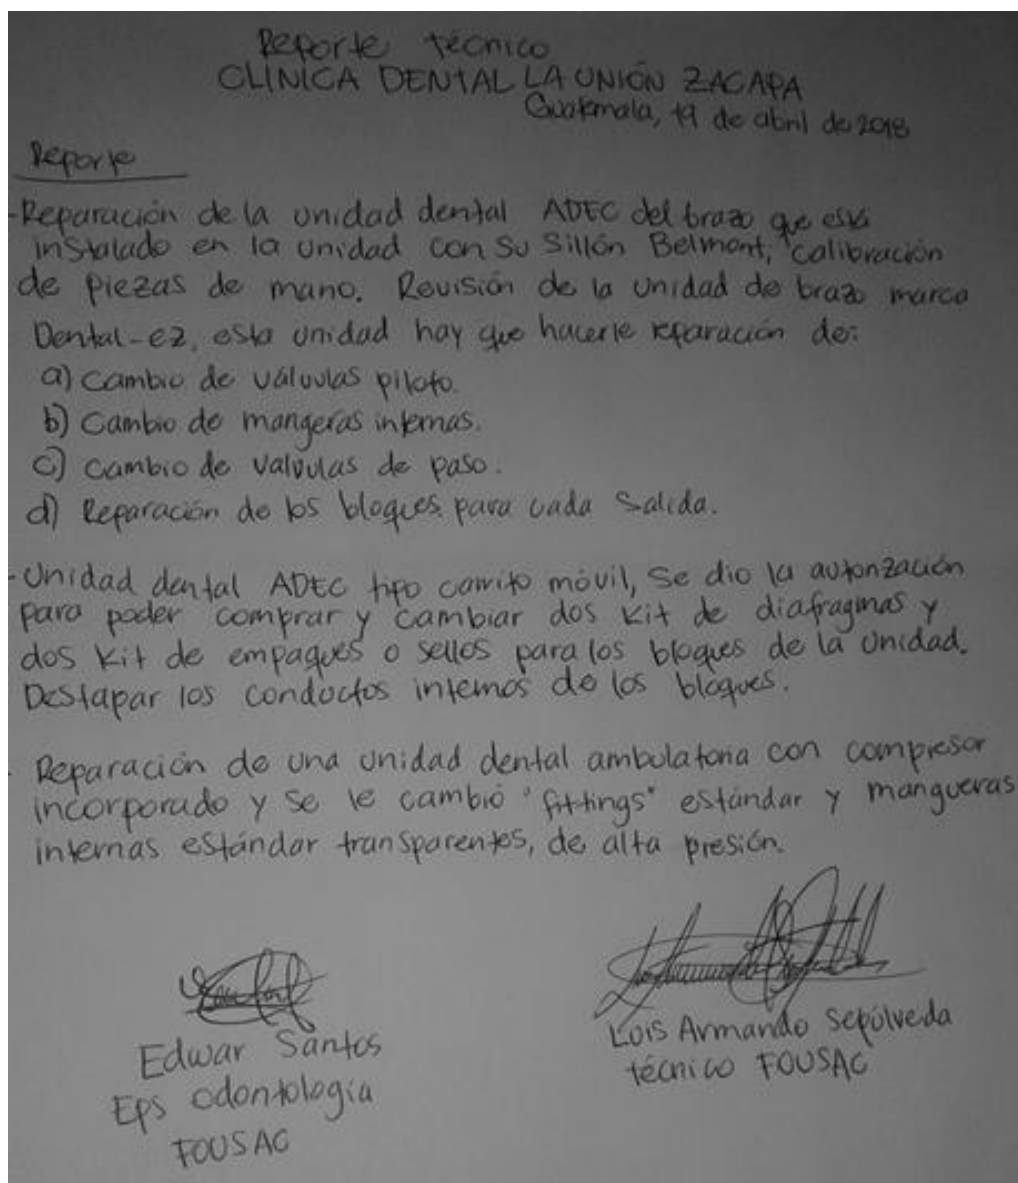 Reporte técnico
CLINICA DENTAL LA UNIÓN ZACAPA
Guatemala, 19 de abril de 2018
Reporte
-Reparación de la unidad dental ADEC del brazo que está
instalado en la unidad con su Sillón Belmont, calibración
de piezas de mano. Revisión de la unidad de brazo marca
Dental-ez, esta unidad hay que hacerle reparación de:
a) Cambio de válvulas piloto.
b) Cambio de mangeras internas.
c) cambio de valvulas de paso.
d) Reparación de los bloques para cada salida.
-Unidad dental ADEC tipo carrito móvil, se dio la autorización
para poder comprar y cambiar dos kit de diafragmas y
dos kit de empaques o sellos para los bloques de la unidad.
Destapar los conductos internos de los bloques.
- Reparación de una unidad dental ambulatoria con compresor
incorporado y se le cambió "fittings" estándar y mangueras
internas estándar transparentes, de alta presión.
Edwar Santos
Eps odontología
FOUSAC
Luis Armando Sepúlveda
técnico FOUSAC